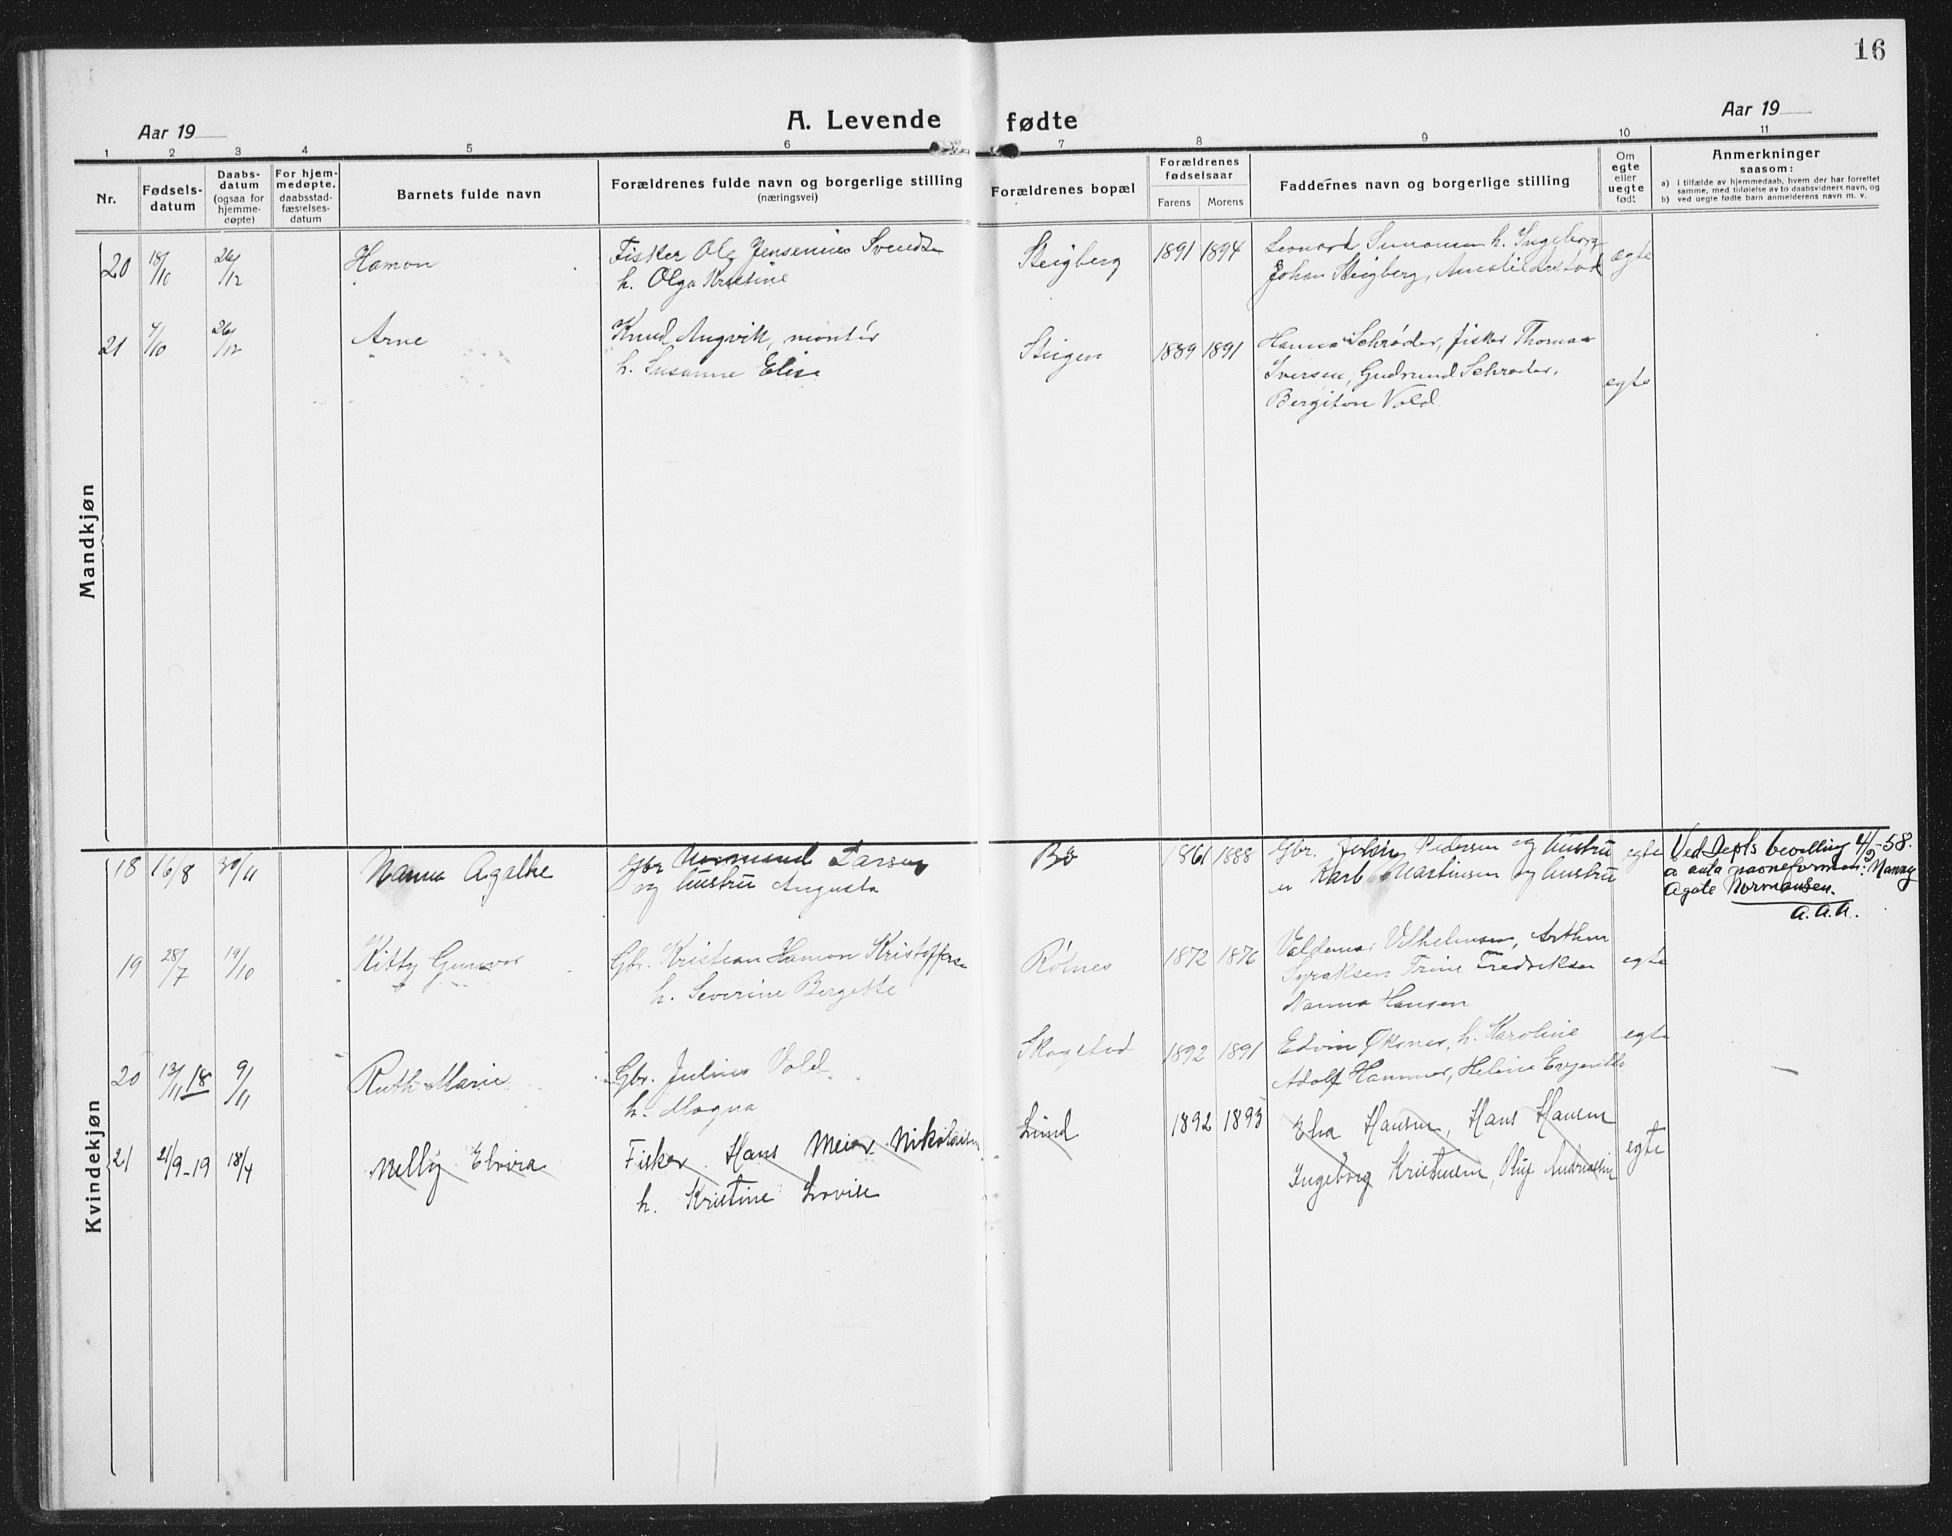 16
Aar 19
A. Levende fødte
Aar 19
1 2 3 4 5 6 7 8 9 10 11
Nr.
Fødsels-
datum
Daabs-
datum
(ogsaa for
hjemme-
døpte)
For hjem-
medøpte,
daabsstad-
fæstelses-
datum
Barnets fulde navn
Forældrenes fulde navn og borgerlige stilling
(næringsvei)
Forældrenes bopæl
Forældrenes
fødselsaar
Farens Morens
Faddernes navn og borgerlige stilling
Om
egte
eller
uegte
født
Anmerkninger
saasom:
a) i tilfælde av hjemmedaab, hvem der har forrettet
samme, med tilføielse av to daabsvidners navn, og
b) ved uegte fødte barn anmelderens navn m. v.
Mandkjøn
20 18/10 26/12 Hamon Fisker Ole Jensenius Svendsen Steigberg 1891 1894 Leonard Simonsen h. Ingeborg egte
h. Olga Kristine Johan Steigberg,
21 4/10 26/12 Arne Knud Angvik, montør Steigen 1889 1891 Hanna Schrøder, fisker Thomas
h. Susanne Elise Iversen, Gudrund Schrøder, egte
Bergiton Vold
Kvindekjøn
18 16/8 30/11 Nanna Agathe Gbr Normand Larsen Bø 1861 1888 Gbr. Johan Pedersen og hustru egte Ved Depts bevilling 4/2-58.
og hustru Augusta " Karl Martinsen og hustru a anta navneformen: Nanny
Agate Normansen.
a.a.a.
19 28/7 19/10 Kitty Gunvor Gbr. Kristian Hamon Kristoffersen Røtnes 1872 1876 Valdemar Vilhelmsen, Arthur egte
h. Severine Bergette Syraksen Trine Fredriksen
Nanna Hansen
20 13/11 18 9/11 Ruth Marie Gbr. Julius Vold Skogstad 1892 1891 Edvin Øksnes, h. Karoline egte
h. Magna Adolf Hammer, Helene
21 21/9-19 18/4 Nelly Elvira Fisker Hans Meier Nikolaisen Lund 1892 1893 Elea Hansen, Hans Hansen egte
h. Kristine Lovise Ingeborg Kristensen, Oluf Andreassen